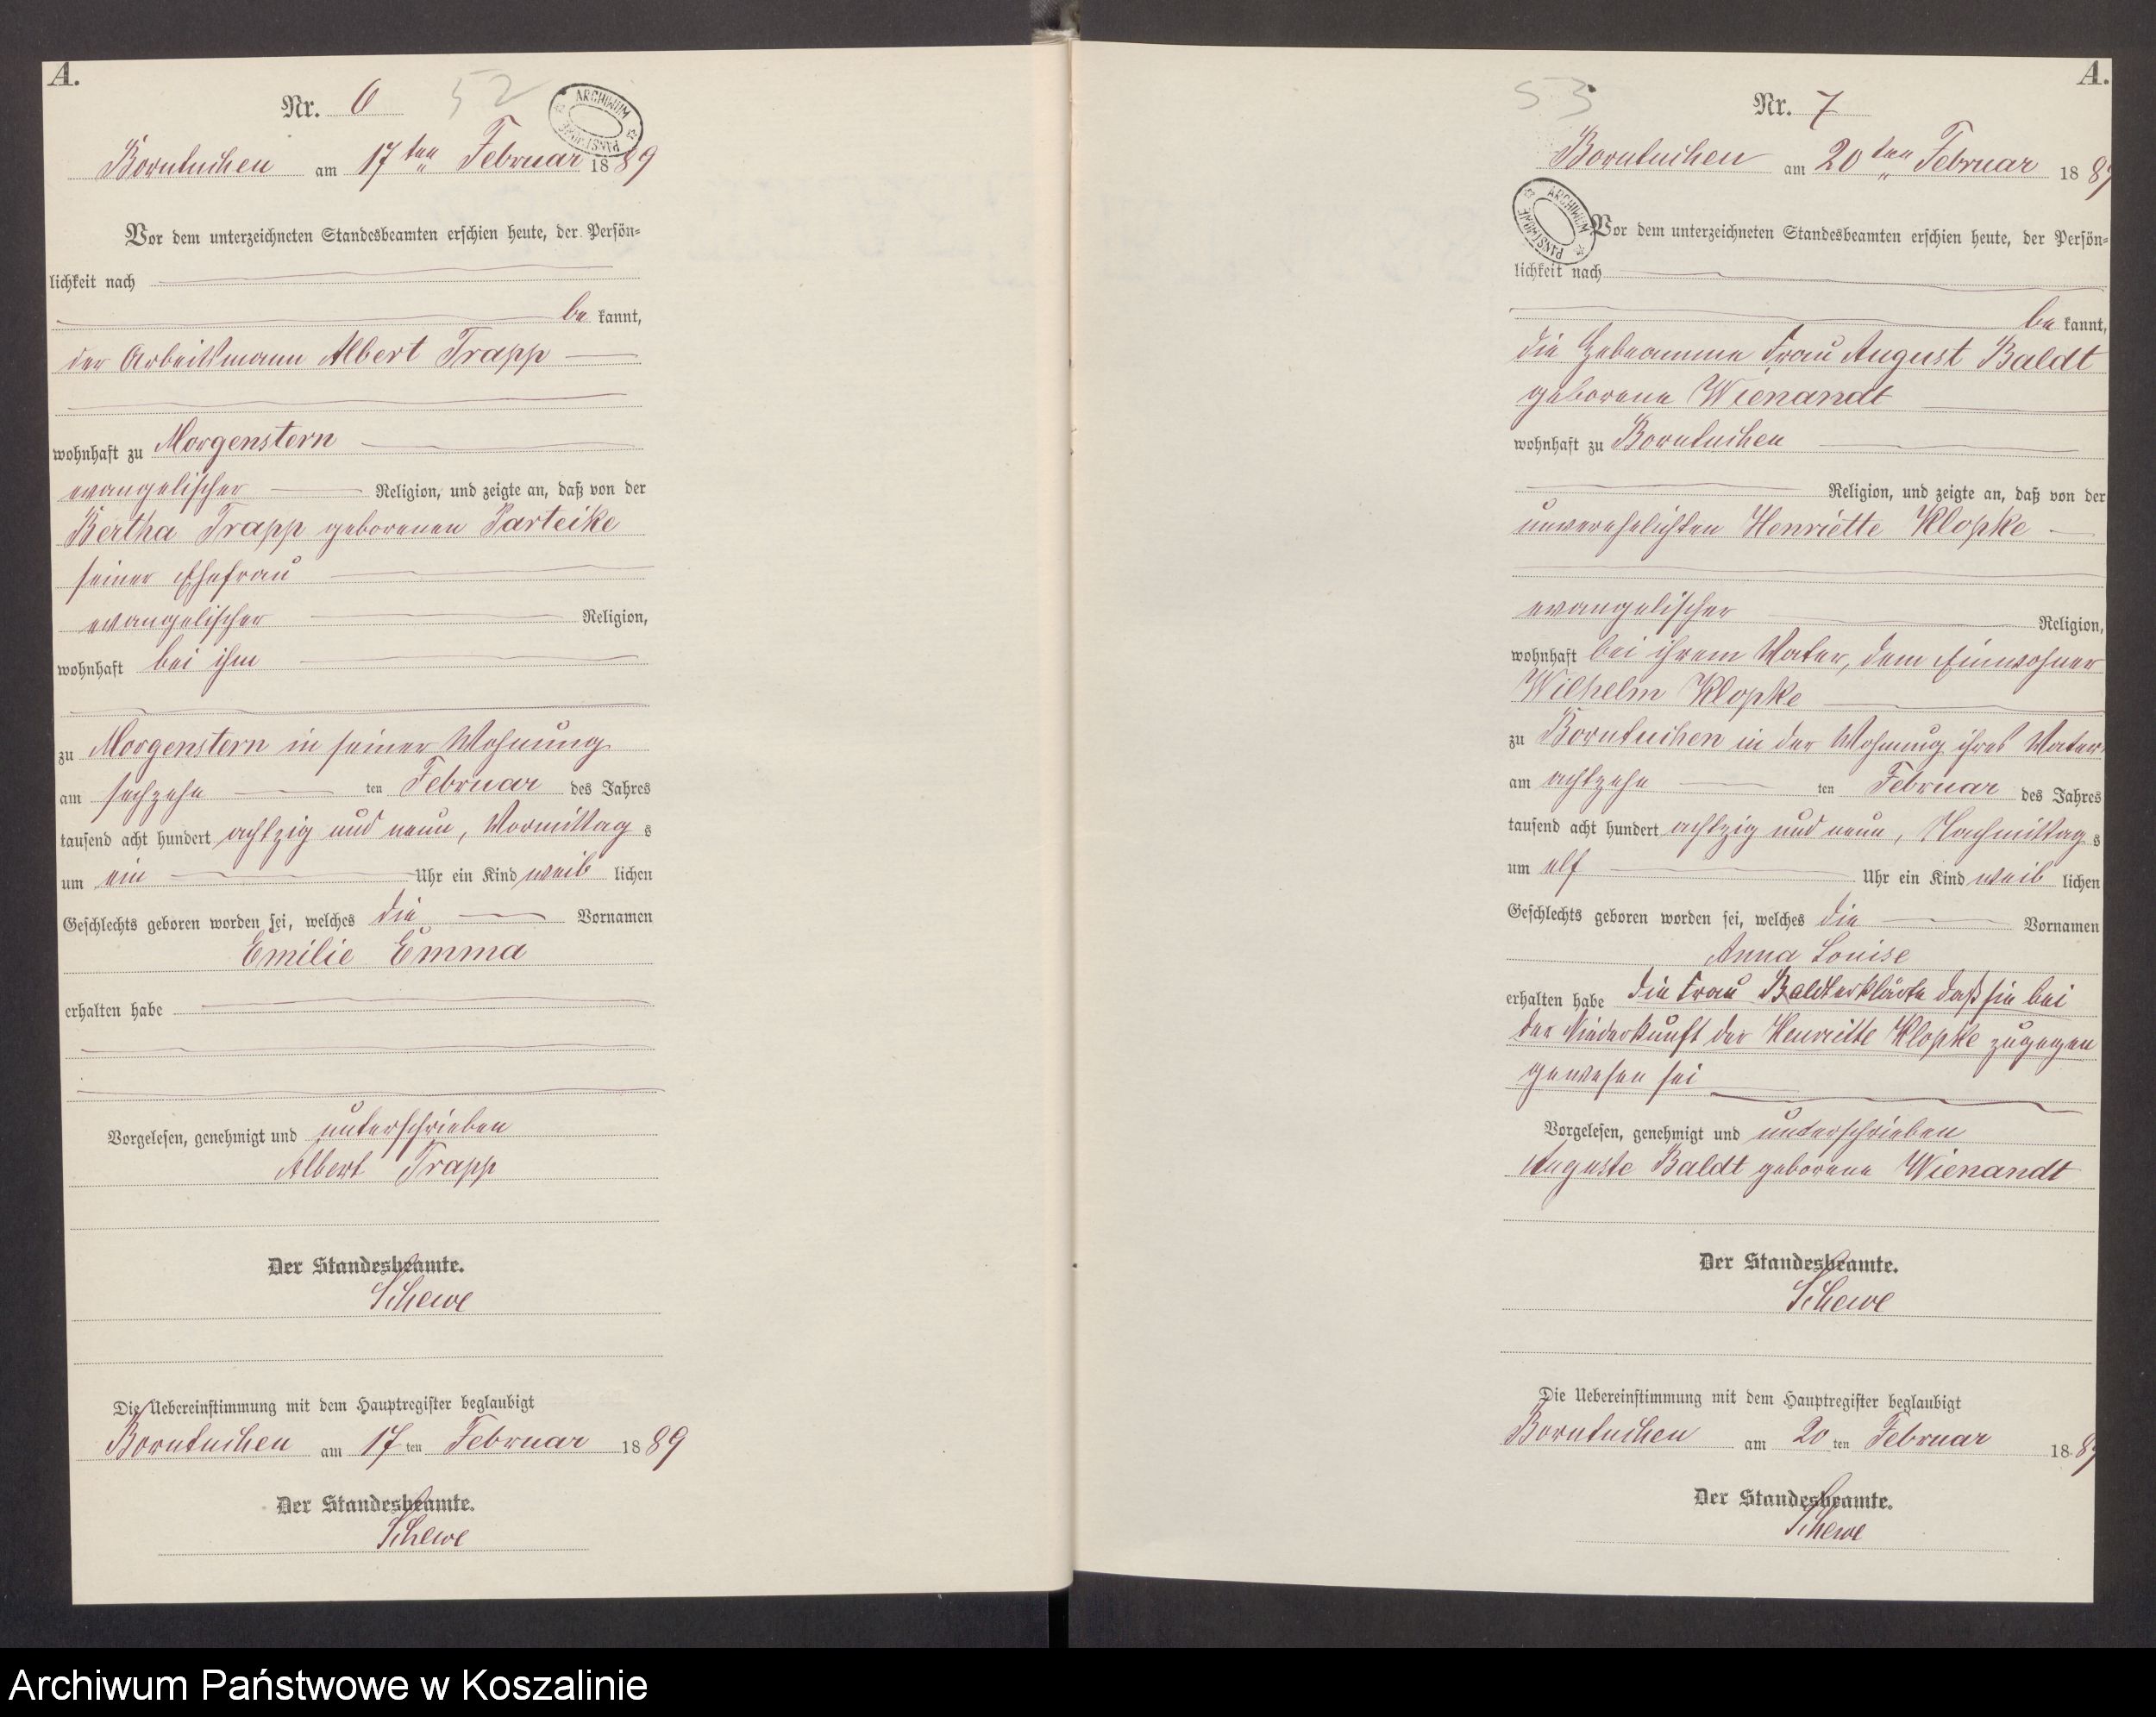 A.
Nr. 6 52
ARCHIWUM PAŃSTWOWE
Borntuchen am 17ten Februar 1889
Vor dem unterzeichneten Standesbeamten erschien heute, der Persön=
lichkeit nach
be kannt,
der Arbeitsmann Albert Trapp
wohnhaft zu Morgenstern
evangelischer Religion, und zeigte an, daß von der
Bertha Trapp geborenen Parteike
seiner Ehefrau
evangelischer Religion,
wohnhaft bei ihm
zu Morgenstern in seiner Wohnung
am sechzehn ten Februar des Jahres
tausend acht hundert achtzig und neun, Vormittag s
um ein Uhr ein Kind weib lichen
Geschlechts geboren worden sei, welches die Vornamen
Emilie Emma
erhalten habe
Vorgelesen, genehmigt und unterschrieben
Albert Trapp
Der Standesbeamte.
Schewe
Die Uebereinstimmung mit dem Hauptregister beglaubigt
Borntuchen am 17 ten Februar 1889
Der Standesbeamte.
Schewe
A.
53 Nr. 7
Borntuchen am 20ten Februar 1889
ARCHIWUM PAŃSTWOWE
Vor dem unterzeichneten Standesbeamten erschien heute, der Persön=
lichkeit nach
be kannt,
die Hebeamme Frau August Baldt
geborene Wienandt
wohnhaft zu Borntuchen
Religion, und zeigte an, daß von der
unverehelichten Henriette Klopke
evangelischer Religion,
wohnhaft bei ihrem Vater, dem Einwohner
Wilhelm Klopke
zu Borntuchen in der Wohnung ihres Vaters
am achtzehn ten Februar des Jahres
tausend acht hundert achtzig und neun, Nachmittag s
um elf Uhr ein Kind weib lichen
Geschlechts geboren worden sei, welches die Vornamen
Anna Louise
erhalten habe die Frau Baldt erklärte daß sie bei
der Niederkunft der Henriette Klopke zugegen
gewesen sei
Vorgelesen, genehmigt und unterschrieben
Auguste Baldt geborene Wienandt
Der Standesbeamte.
Schewe
Die Uebereinstimmung mit dem Hauptregister beglaubigt
Borntuchen am 20 ten Februar 1889
Der Standesbeamte.
Schewe
Archiwum Państwowe w Koszalinie